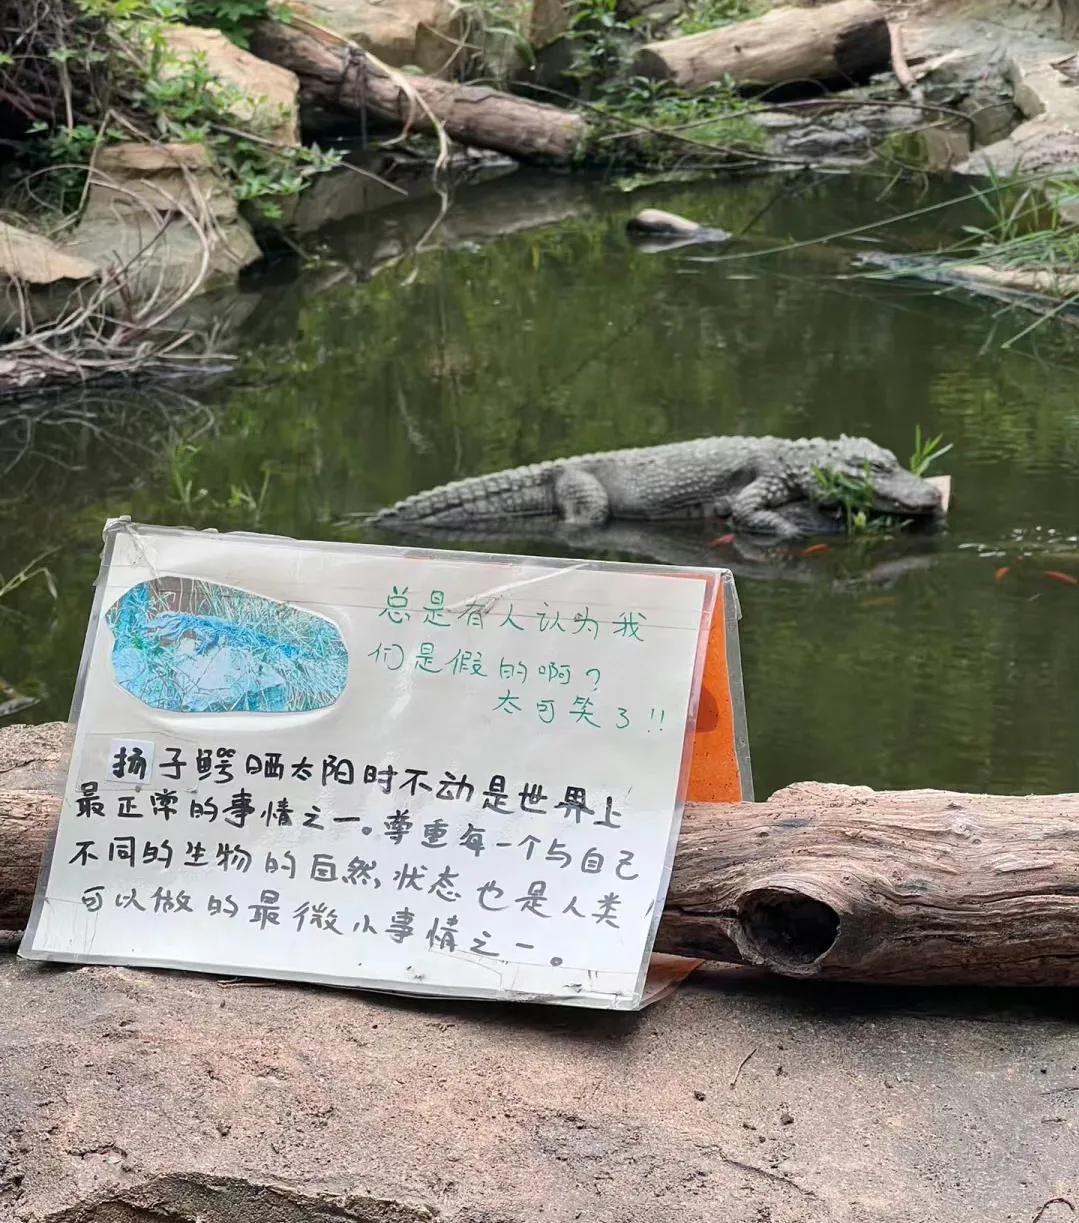 总是有人认为我
们是假的啊?
太可笑了!!
扬子鳄晒太阳时不动是世界上
最正常的事情之一。尊重每一个与自己
不同的生物的自然状态也是人类
可以做的最微小事情之一。